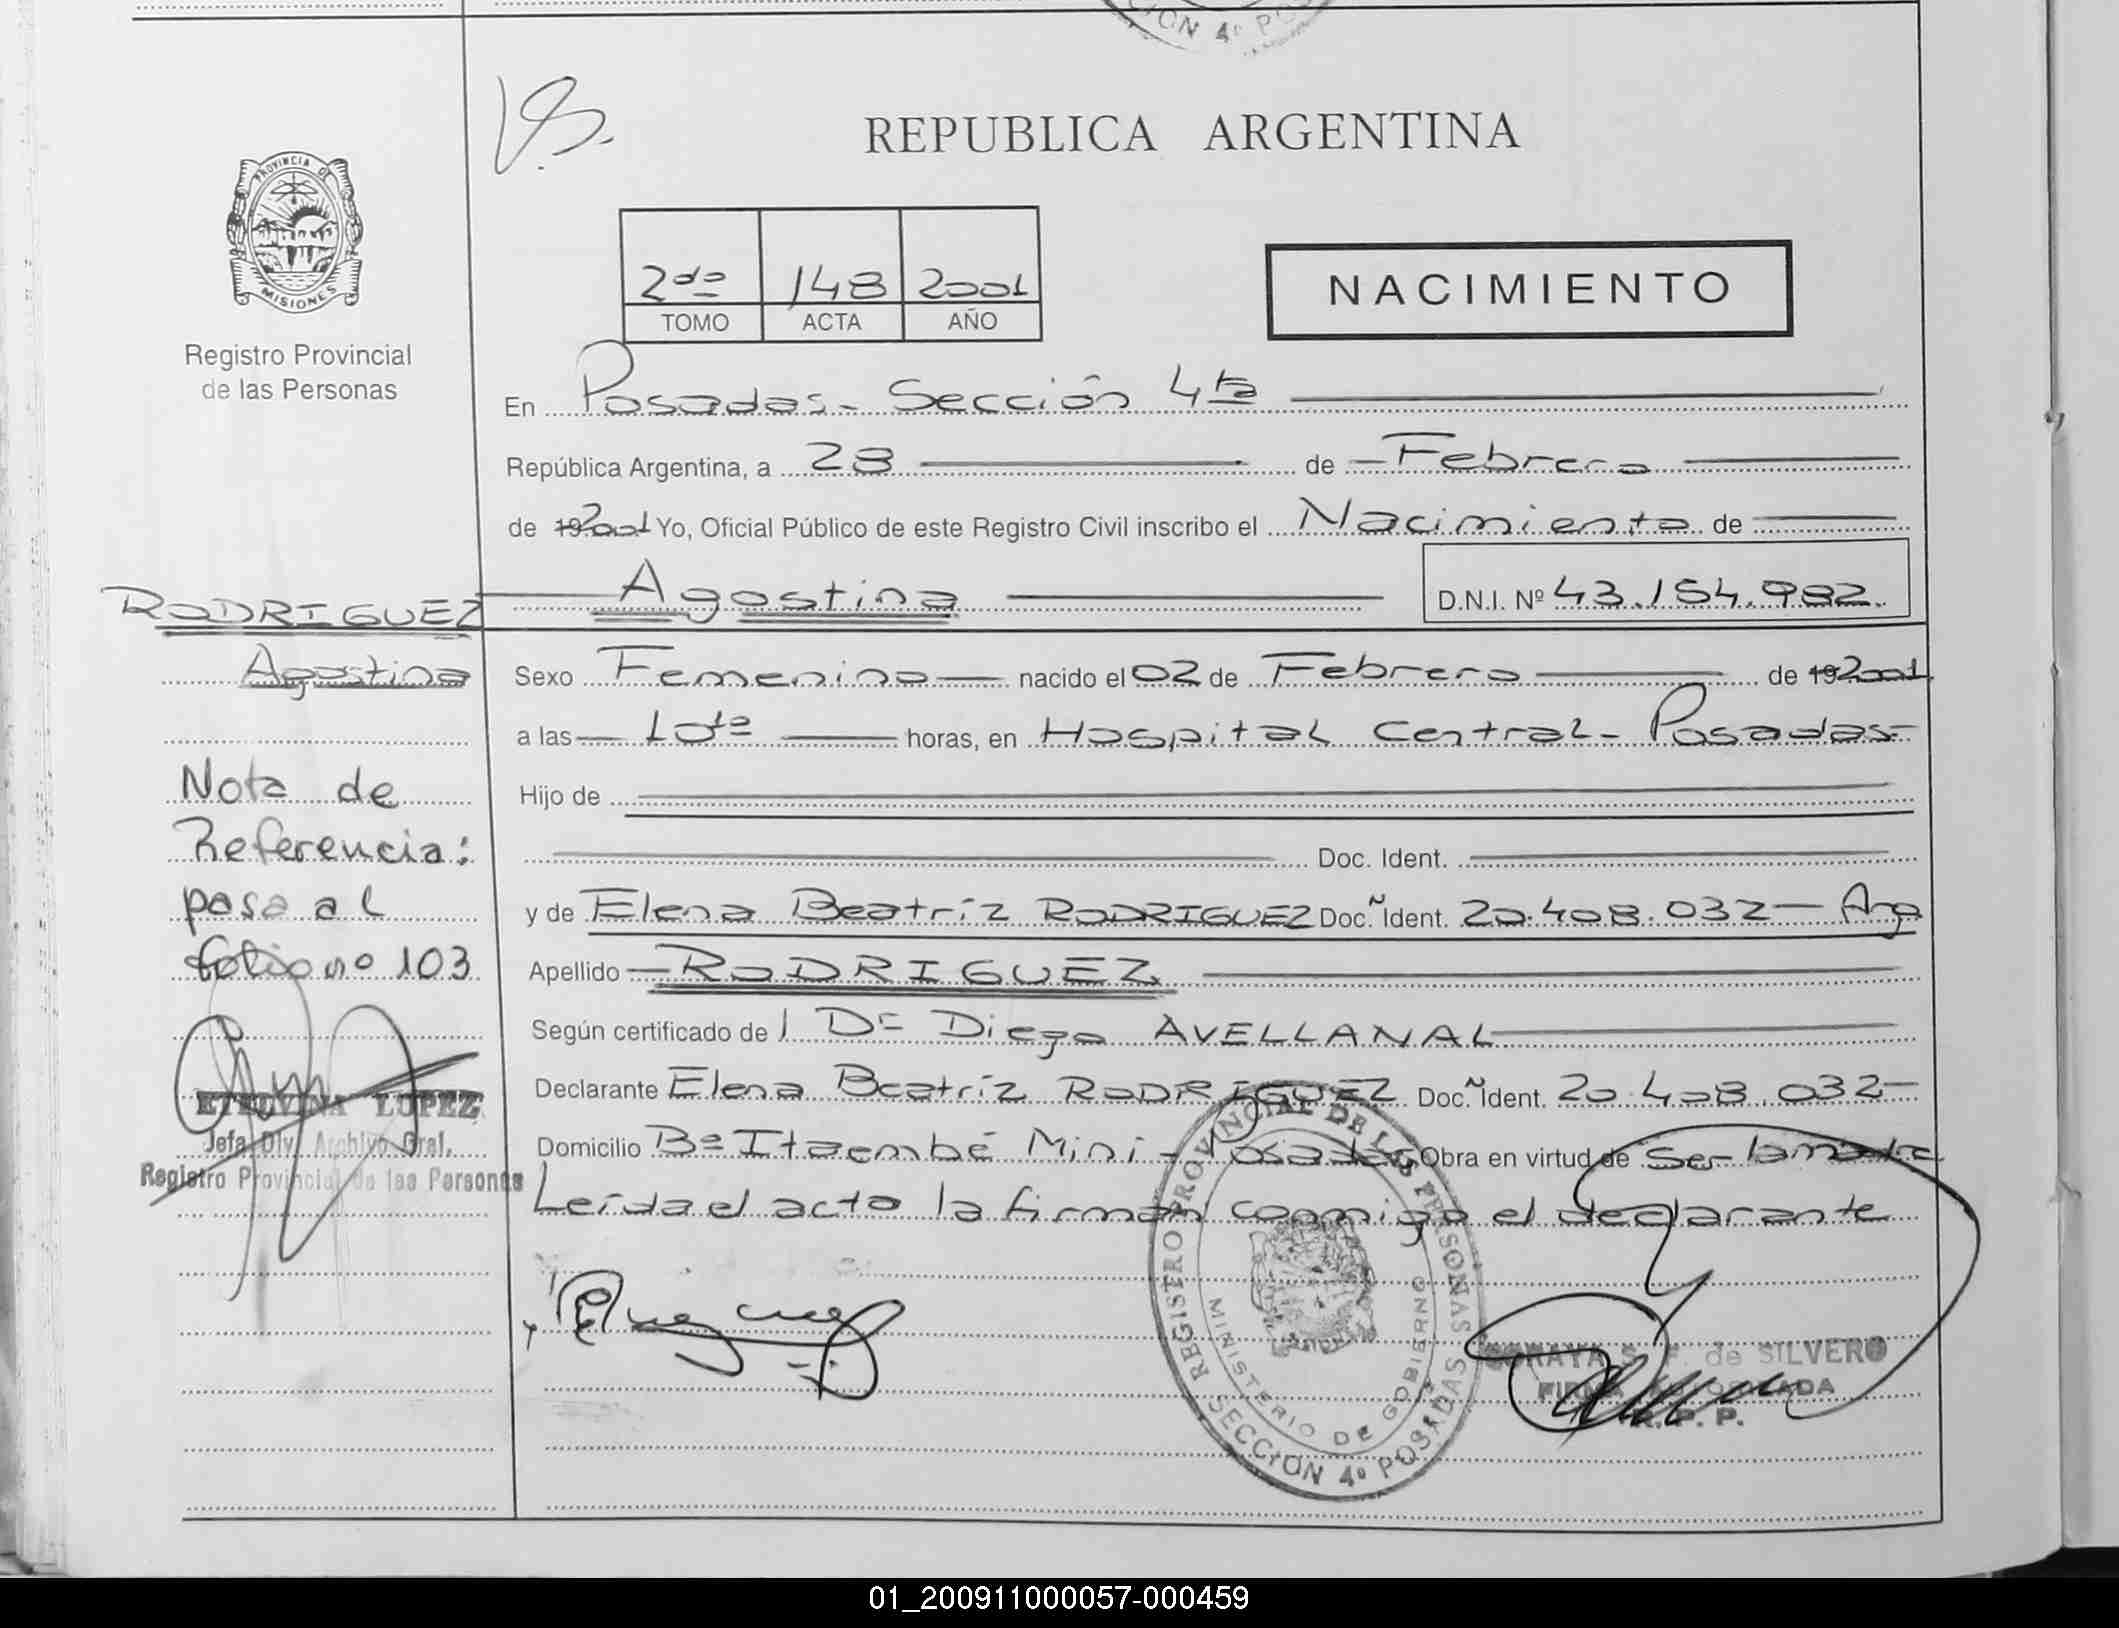 CION 4º PO
REPUBLICA ARGENTINA
PROVINCIA DE
MISIONES
2do 148 2001
TOMO ACTA AÑO
NACIMIENTO
Registro Provincial
de las Personas
En Posadas - Sección 4ta
República Argentina, a 28 de Febrero
de 19 2001 Yo, Oficial Público de este Registro Civil inscribo el Nacimiento de
RODRIGUEZ Agostina D.N.I. Nº 43.154.982.
Agostina Sexo Femenino nacido el 02 de Febrero de 19 2001
a las 10ta horas, en Hospital Central - Posadas
Nota de Hijo de
Referencia: Doc. Ident.
pasa al y de Elena Beatríz RODRIGUEZ Doc. Ñ Ident. 20.408.032 - Arg
folio nº 103 Apellido RODRIGUEZ
Según certificado de Dr Diego AVELLANAL
ETELVINA LOPEZ Declarante Elena Beatríz RODRIGUEZ Doc. Ñ Ident. 20.408.032
Jefa Div. Archivo Gral. Domicilio Bº Itaembé Miní - Posadas Obra en virtud de Ser la madre
Registro Provincial de las Personas Leída el acto la firman conmigo el declarante
REGISTRO PROVINCIAL DE LAS PERSONAS
MINISTERIO DE GOBIERNO
SECCION 4º POSADAS
SORAYA S. F. de SILVERO
FIRMA AUTORIZADA
R. P. P.
01_200911000057-000459